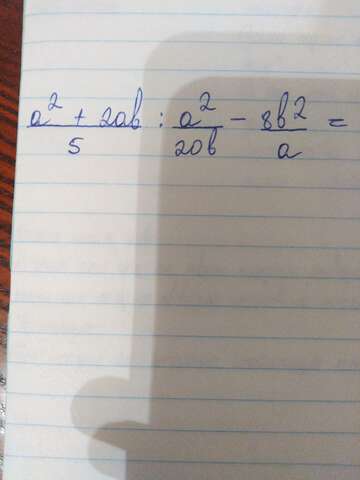 a² + 2ab / 5 : a² / 20b - 8b² / a =